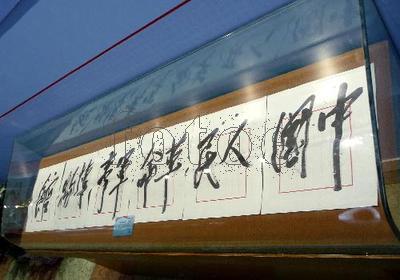 中國人民革命軍事博物館